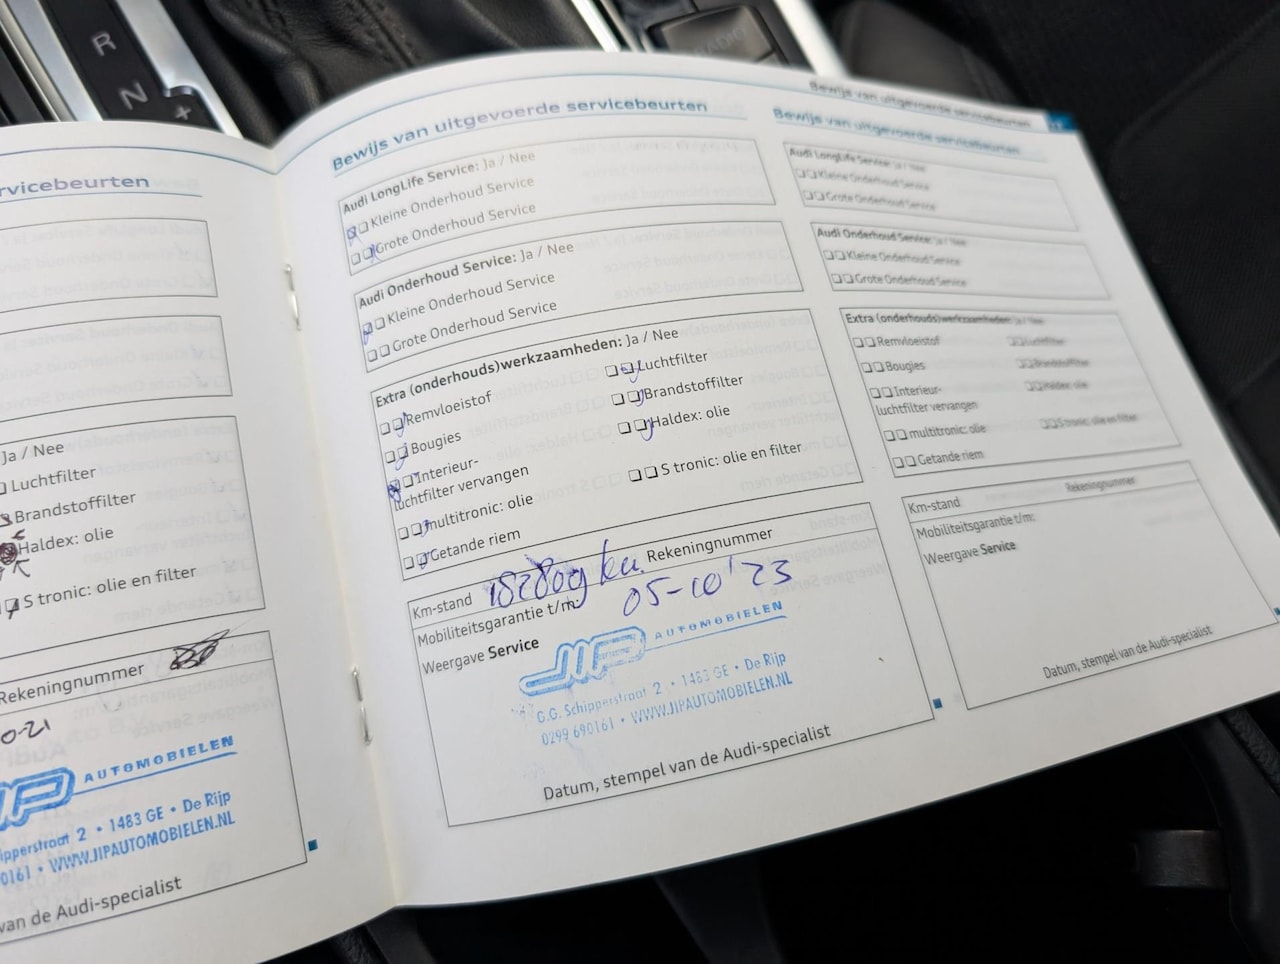 R
N
+
rvicebeurten
Ja / Nee
Luchtfilter
Brandstoffilter
Haldex: olie
S tronic: olie en filter
Rekeningnummer
0-21
AUTOMOBIELEN
ipperstraat 2 • 1483 GE • De Rijp
0161 • WWW.JIPAUTOMOBIELEN.NL
van de Audi-specialist
Bewijs van uitgevoerde servicebeurten
Audi LongLife Service: Ja / Nee
Kleine Onderhoud Service
Grote Onderhoud Service
Audi Onderhoud Service: Ja / Nee
Kleine Onderhoud Service
Grote Onderhoud Service
Extra (onderhouds)werkzaamheden: Ja / Nee
Remvloeistof
Bougies
Interieur-
luchtfilter vervangen
multitronic: olie
Getande riem
Luchtfilter
Brandstoffilter
Haldex: olie
S tronic: olie en filter
Km-stand 182809 km. Rekeningnummer
Mobiliteitsgarantie t/m: 05-10'23
Weergave Service
JIP AUTOMOBIELEN
G.G. Schipperstraat 2 • 1483 GE • De Rijp
0299 690161 • WWW.JIPAUTOMOBIELEN.NL
Datum, stempel van de Audi-specialist
Bewijs van uitgevoerde servicebeurten
Bewijs van uitgevoerde servicebeurten
Audi LongLife Service: Ja / Nee
Kleine Onderhoud Service
Grote Onderhoud Service
Audi Onderhoud Service: Ja / Nee
Kleine Onderhoud Service
Grote Onderhoud Service
Extra (onderhouds)werkzaamheden: Ja / Nee
Remvloeistof
Bougies
Interieur-
luchtfilter vervangen
multitronic: olie
Getande riem
Luchtfilter
Brandstoffilter
Haldex: olie
S tronic: olie en filter
Km-stand Rekeningnummer
Mobiliteitsgarantie t/m:
Weergave Service
Datum, stempel van de Audi-specialist